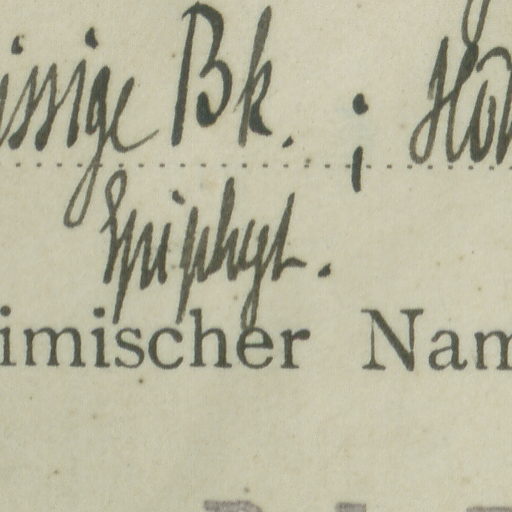 issige Bk. ; Hö
Epiphyt.
imischer Nam